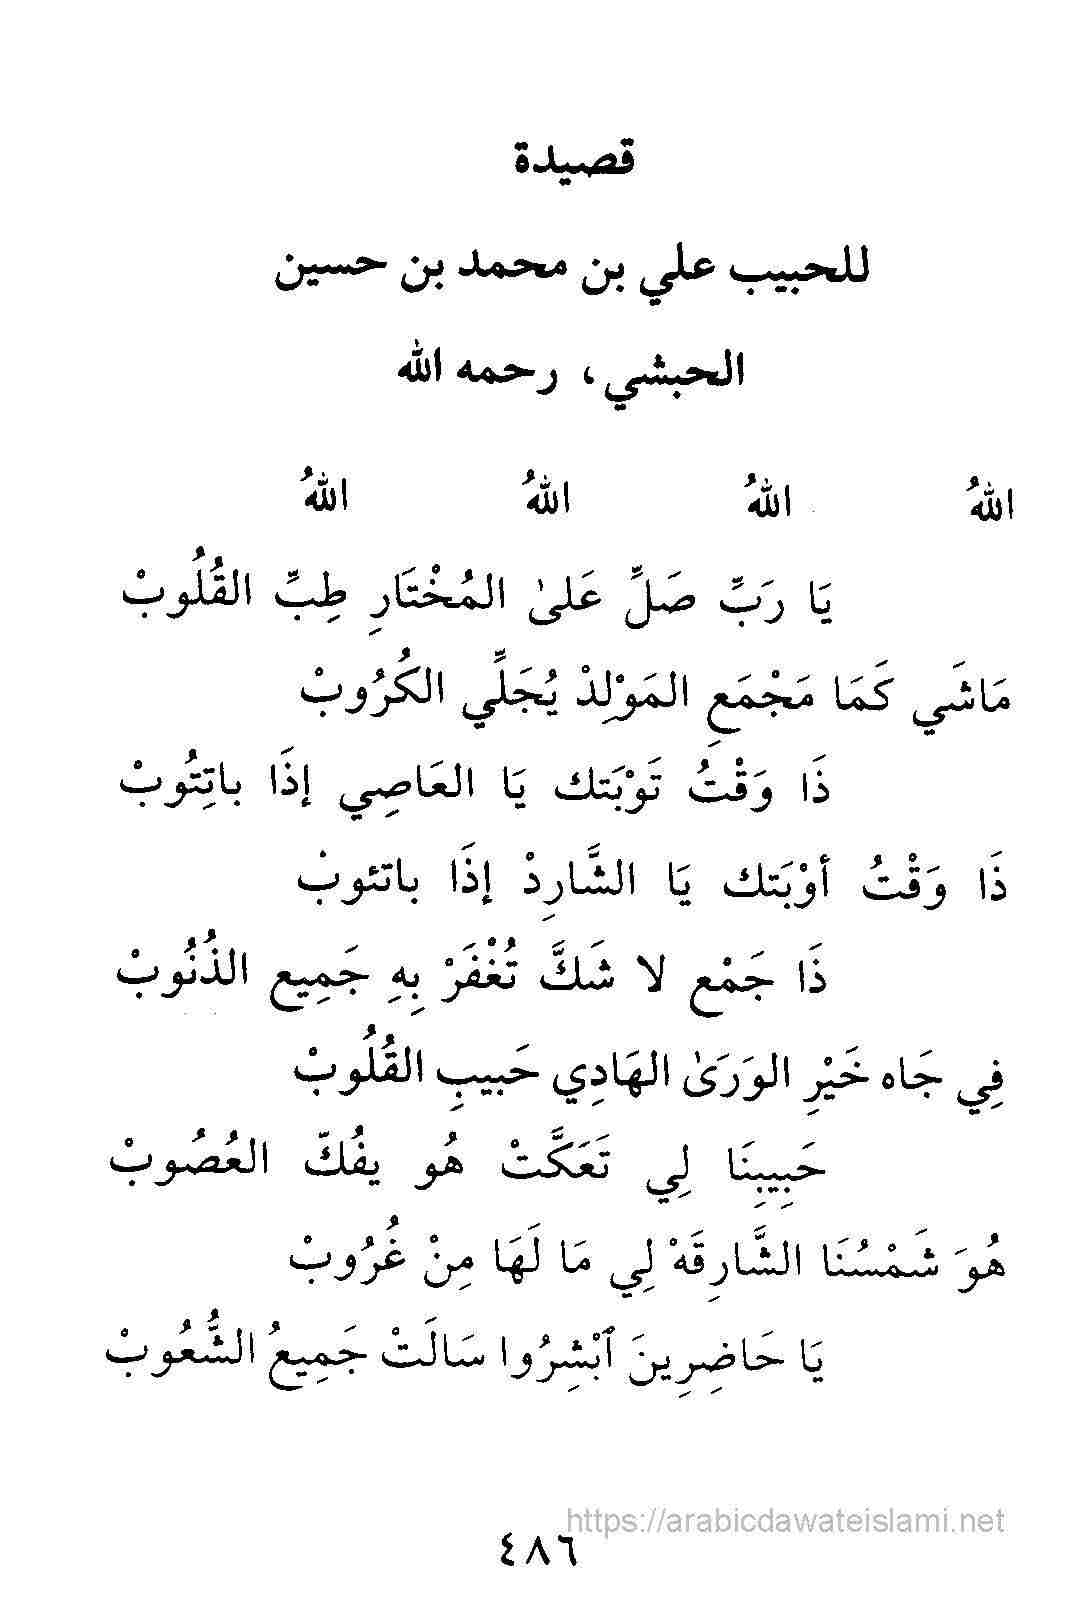 قصيدة
للحبيب علي بن محمد بن حسين
الحبشي، رحمه الله
اللهُ اللهُ اللهُ اللهُ
يَا رَبِّ صَلِّ عَلىٰ المُخْتَارِ طِبِّ القُلُوبْ
مَاشَي كَمَا مَجْمَعِ المَوْلِدْ يُجَلِّي الكُرُوبْ
ذَا وَقْتُ تَوْبَتك يَا العَاصِي إذَا باتِتُوبْ
ذَا وَقْتُ أوْبَتك يَا الشَّارِدْ إذَا باتئوبْ
ذَا جَمْعِ لا شَكَّ تُغْفَرْ بِهِ جَمِيعِ الذُنُوبْ
فِي جَاه خَيْرِ الوَرَىٰ الهَادِي حَبيبِ القُلُوبْ
حَبِيبِنَا لِي تَعَكَّتْ هُو يفُكّ العُصُوبْ
هُوَ شَمْسُنَا الشَّارِقَهْ لِي مَا لَهَا مِنْ غُرُوبْ
يَا حَاضِرِينَ ٱبْشِرُوا سَالَتْ جَمِيعُ الشُّعُوبْ
https://arabicdawateislami.net
٤٨٦